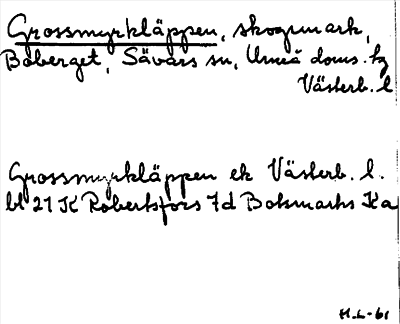 Grossmyrkläppen, skogsmark,
Boberget, Sävars sn, Umeå doms. hg
Västerb. l
Grossmyrkläppen ek Västerb. l.
bl 21 K Robertsfors 7d Botsmarks Ka
H.L-61